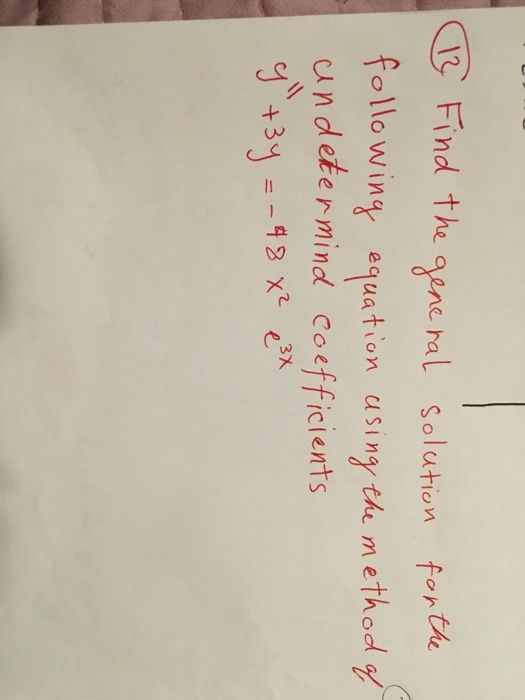 12 Find the general solution for the
following equation using the method of
undetermind coefficients
y" + 3y = - 48 x² e³ˣ